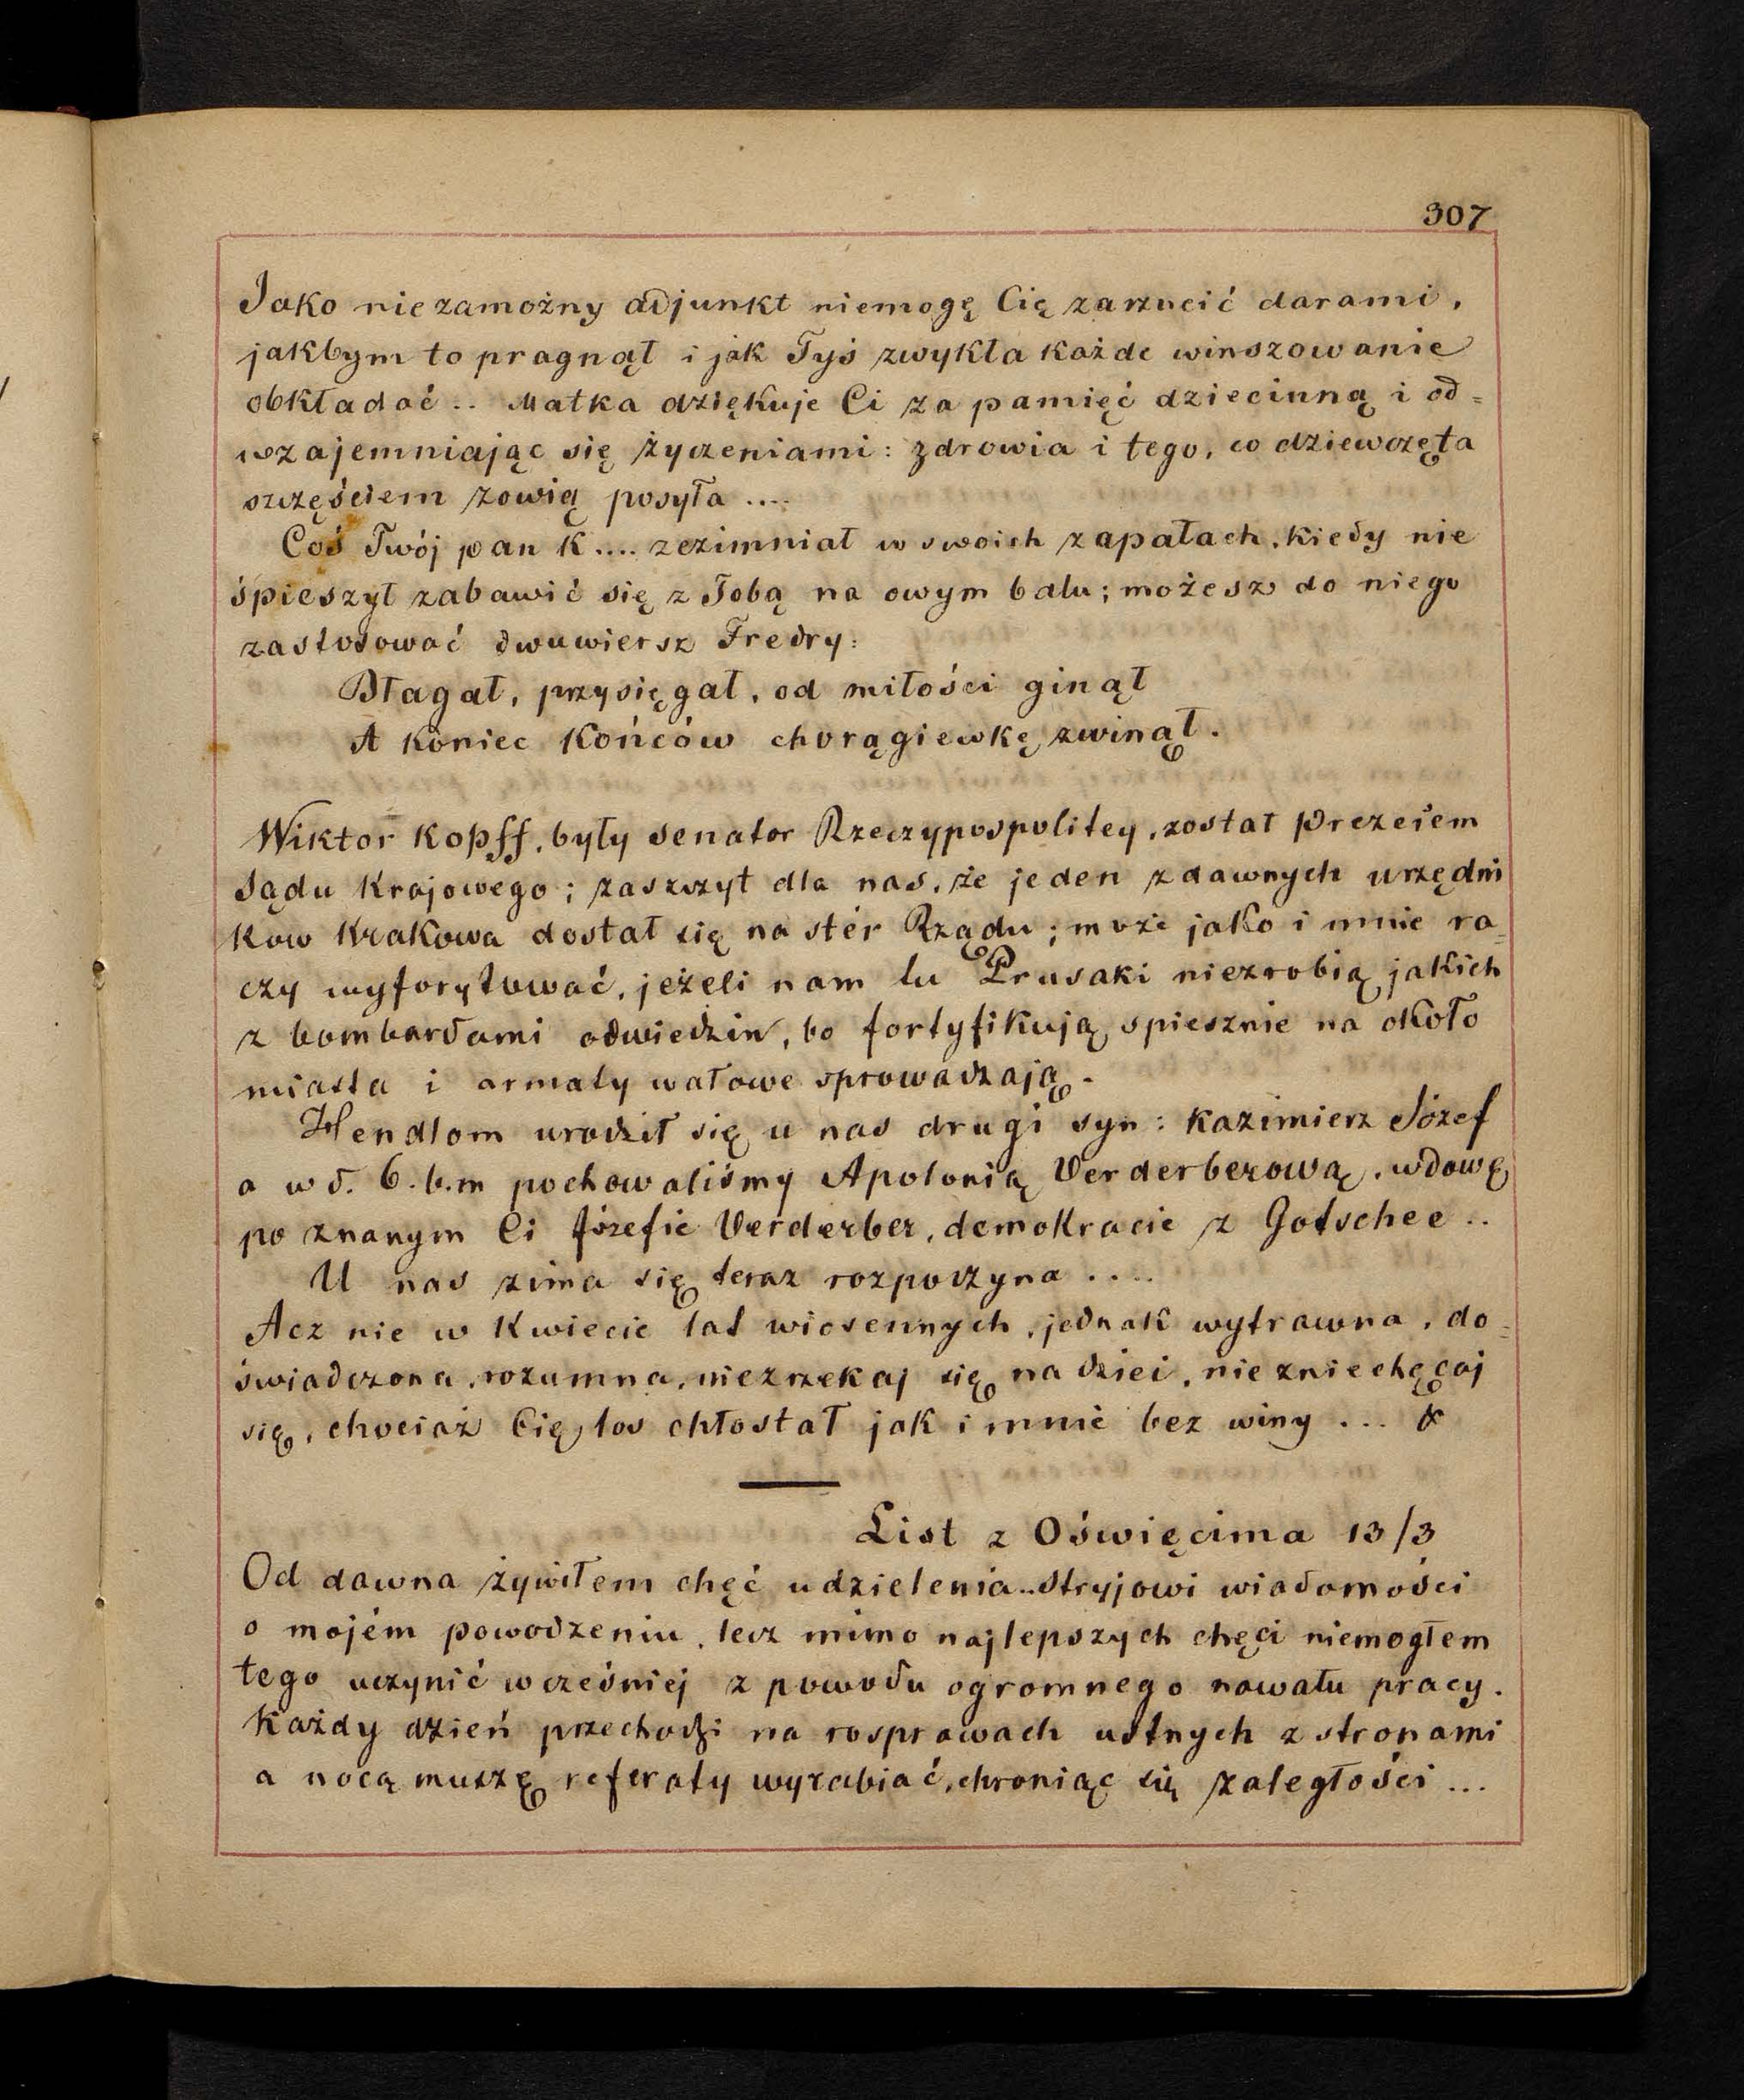 307
Jako niezamożny adjunkt niemogę Cię zarzucić darami,
jakbym to pragnął i jak Tyś zwykła każde winszowanie
obkładać .. Matka dziękuje Ci za pamięć dziecinną i od=
wzajemniając się życzeniami: zdrowia i tego, co dziewczęta
szczęściem zowią posyła ....
Coś Twój pan K.... zezimniał w swoich zapałach, kiedy nie
śpieszył zabawić się z Tobą na owym balu; możesz do niego
zastosować dwuwiersz Fredry:
Błagał, przysięgał, od miłości ginął
A koniec końców chorągiewkę zwinął.
Wiktor Kopff, były senator Rzeczypospolitey, został Prezesem
Sądu Krajowego; zaszczyt dla nas, że jeden z dawnych urzędni
ków Krakowa dostał się na stér Rządu; może jako i mnie ra=
czy wyforytować, jeżeli nam tu Prusaki niezrobią jakich
z bombardami odwiedzin, bo fortyfikują spiesznie na około
miasta i armaty wałowe sprowadzają.
Hendlom urodził się u nas drugi syn: Kazimierz Józef
a w d. 6. b.m pochowaliśmy Apolonią Verderberową, wdowę
po znanym Ci Józefie Verderber, demokracie z Gotschee ..
U nas zima się teraz rozpoczyna ....
Acz nie w kwiecie lat wiosennych, jednak wytrawna, do=
świadczona, rozumna, niezrzekaj się nadziei, nie zniechęcaj
się, chociaż Cię los chłostał jak i mnie bez winy ... &
List z Oświęcima 13/3
Od dawna żywiłem chęć udzielenia..Stryjowi wiadomości
o mojém powodzeniu, lecz mimo najlepszych chęci niemogłem
tego uczynić wcześniej z powodu ogromnego nawału pracy.
Każdy dzień przechodzi na rosprawach ustnych z stronami
a nocą muszę referaty wyrabiać, chroniąc się zaległości ...